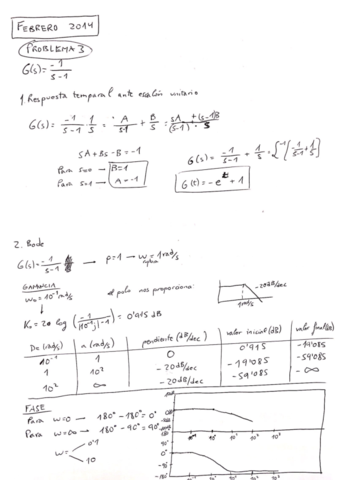 FEBRERO 2014
PROBLEMA 3
G(s) = -1 / s-1
1 Respuesta temporal ante escalón unitario
G(s) = -1/s-1 · 1/s = A/s-1 + B/s = sA + (s-1)B / (s-1)·s
sA + Bs - B = -1
Para s=0 → B=1
Para s=1 → A=-1
G(s) = -1/s-1 + 1/s = L⁻¹[-1/s-1 + 1/s]
G(t) = -e^t + 1
2. Bode
G(s) = -1/s-1 → p=1 → w = 1 rad/s
GANANCIA
w₀ = 10⁻¹ rad/s
el polo nos proporciona:
-20dB/dec
10¹
K₀ = 20 log (-1/(10⁻¹j)-1) = 0'915 dB
De (rad/s) a (rad/s) pendiente (dB/dec) valor inicial (dB) valor final (dB)
10⁻¹ 1 0 0'915 -19'085
1 10² -20dB/dec -19'085 -59'085
10² ∞ -20dB/dec -59'085 -∞
FASE
Para w=0 → 180° - 180° = 0°
Para w=∞ → 180° - 90° = 90°
w= 0'1
10